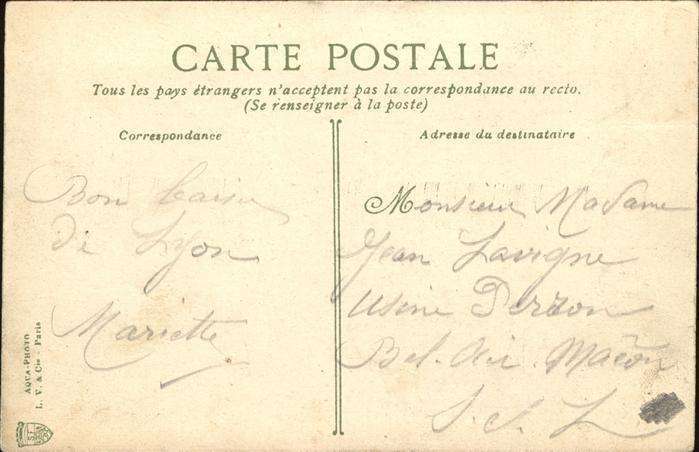 CARTE POSTALE
Tous les pays étrangers n'acceptent pas la correspondance au recto.
(Se renseigner à la poste)
Correspondance
Bon baiser
de Lyon
Mariette
Adresse du destinataire
Monsieur Madame
Jean Lavigne
Usine
Bel-Air Macon
S. et L
AQUA-PHOTO
L. V. & Cie Paris